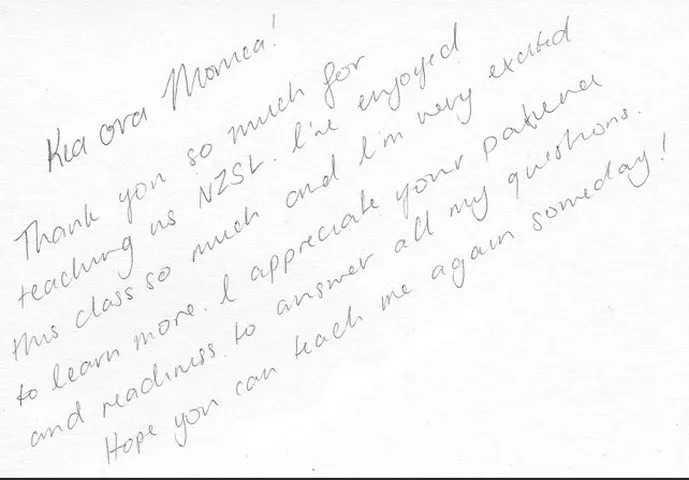 Kia ora Monica!
Thank you so much for
teaching us NZSL. I've enjoyed
this class so much and I'm very excited
to learn more. I appreciate your patience
and readiness to answer all my questions.
Hope you can teach me again someday!